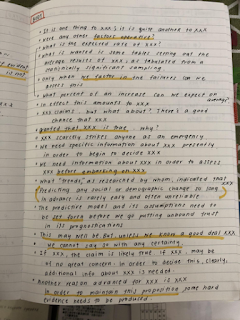 • It is one thing to xxx; it is quite another to xxx
• Were and other factors operative?
• What is the expected rate of xxx?
• What is wanted is some tables setting out the
average results of xxx, as tabulated from a
statistically significant sampling
• Only when we factor in the failures can we
assess this
• What percent of an increase can we expect on
average?
• In effect this amounts to xxx
• xxx claims, but what about? There's a good
chance that xxx
• Granted that xxx is true, why?
• xxx scarcely strikes anyone as an emergency
• We need specific information about xxx presently
in order to begin to decide xxx
• We need information about xxx in order to assess
xxx before embarking on xxx
• What "trends," as restricted by whom, indicated that xxx
Predicting any social or demographic change so long
in advance is rarely easy and often unreliable
• The predictive model and its assumptions need to
be set forth before we go putting unbound trust
in its prognostications
• This may well be but until we know a good deal xxx
we cannot say so with any certainty
• If xxx, the claim is likely that if xxx, may be
of no great concern. In order to decide this, clearly,
additional info about xxx is needed
• Another reason advanced for xxx is xxx
In order to maintain this proposition some hard
evidence needs to be produced